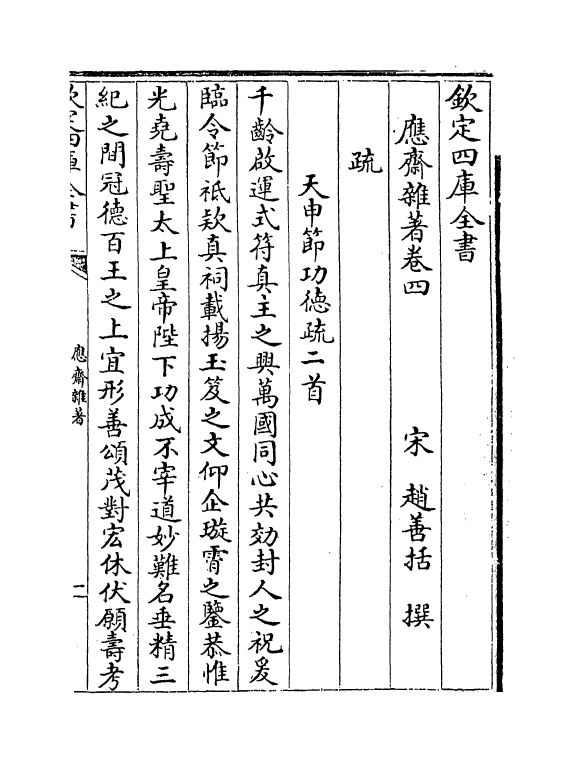 欽定四庫全書
應齋雜著卷四
宋 趙善括 撰
疏
天申節功徳疏二首
千齡啟運式符真主之興萬國同心共効封人之祝爰
臨令節祗欵真祠載揚玉笈之文仰企璇霄之鑒恭惟
光堯壽聖太上皇帝陛下功成不宰道妙難名垂精三
紀之間冠德百王之上宜形善頌茂對宏休伏願壽考
欽定四庫全書
應齋雜著